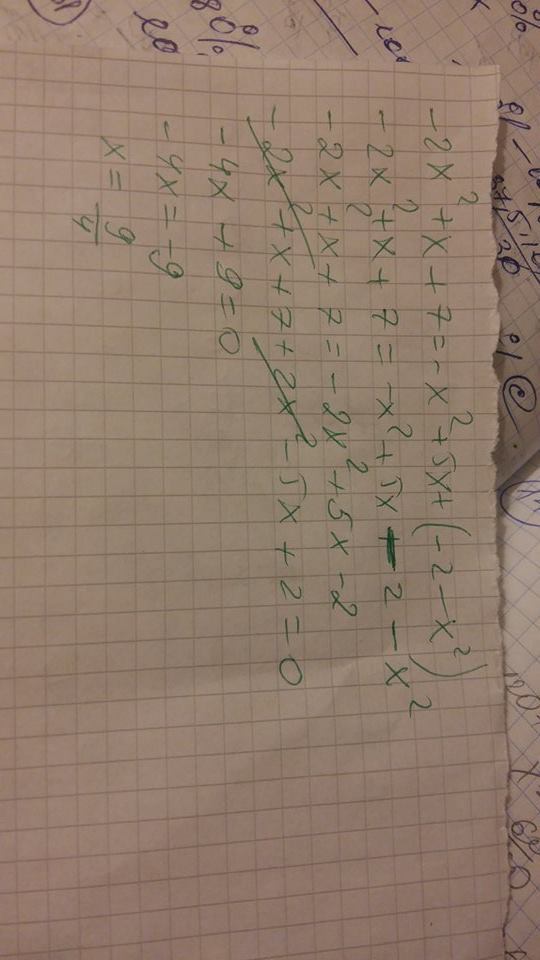 -2x² + x + 7 = -x² + 5x + (-2 - x²)
-2x² + x + 7 = -x² + 5x - 2 - x²
-2x² + x + 7 = -2x² + 5x - 2
-2x² + x + 7 + 2x² - 5x + 2 = 0
-4x + 9 = 0
-4x = -9
x = 9/4